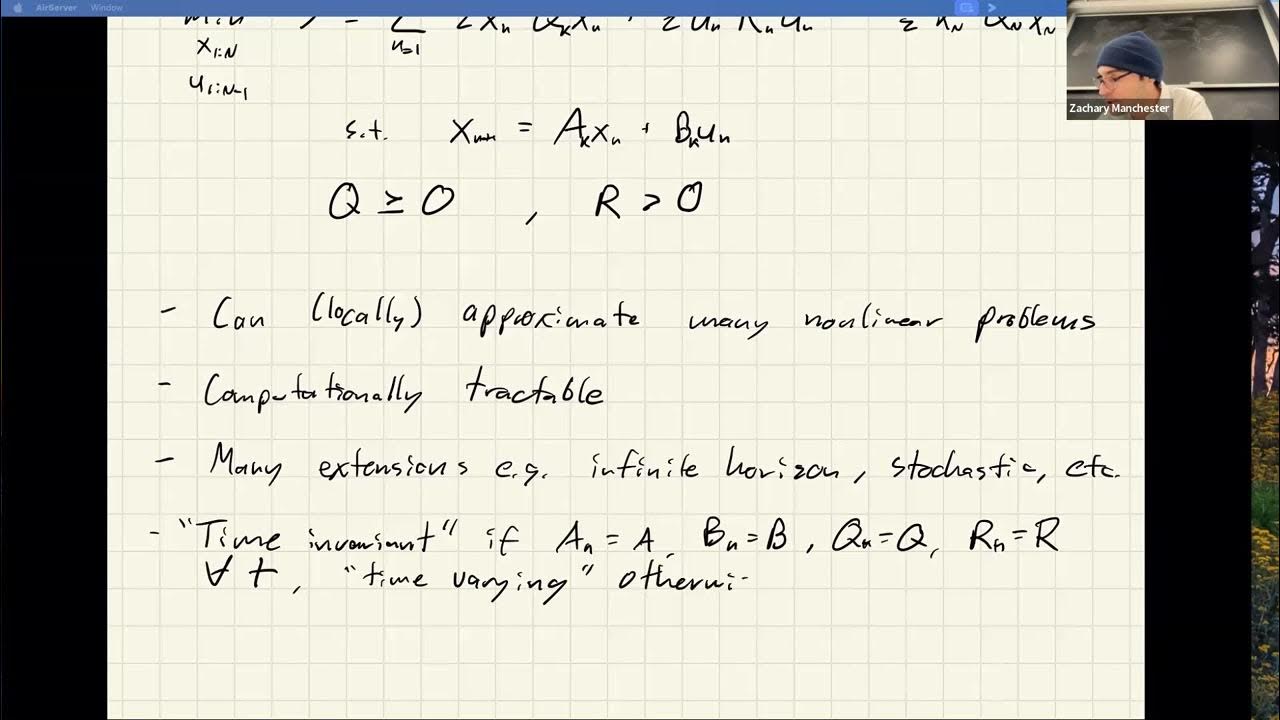 AirServer Window
x₁:N J = Σ ½ xₙ Qₖxₙ + ½ uₙ Rₙ uₙ ½ xN QN xN
n=1
u₁:N-1
s.t. xₙ₊₁ = Aₖxₙ + Bₖuₙ
Q ≥ 0 , R > 0
- Can (locally) approximate many nonlinear problems
- Computationally tractable
- Many extensions e.g. infinite horizon, stochastic, etc.
- "Time invariant" if Aₙ = A, Bₙ = B, Qₙ = Q, Rₙ = R
∀ t, "time varying" otherwi
Zachary Manchester